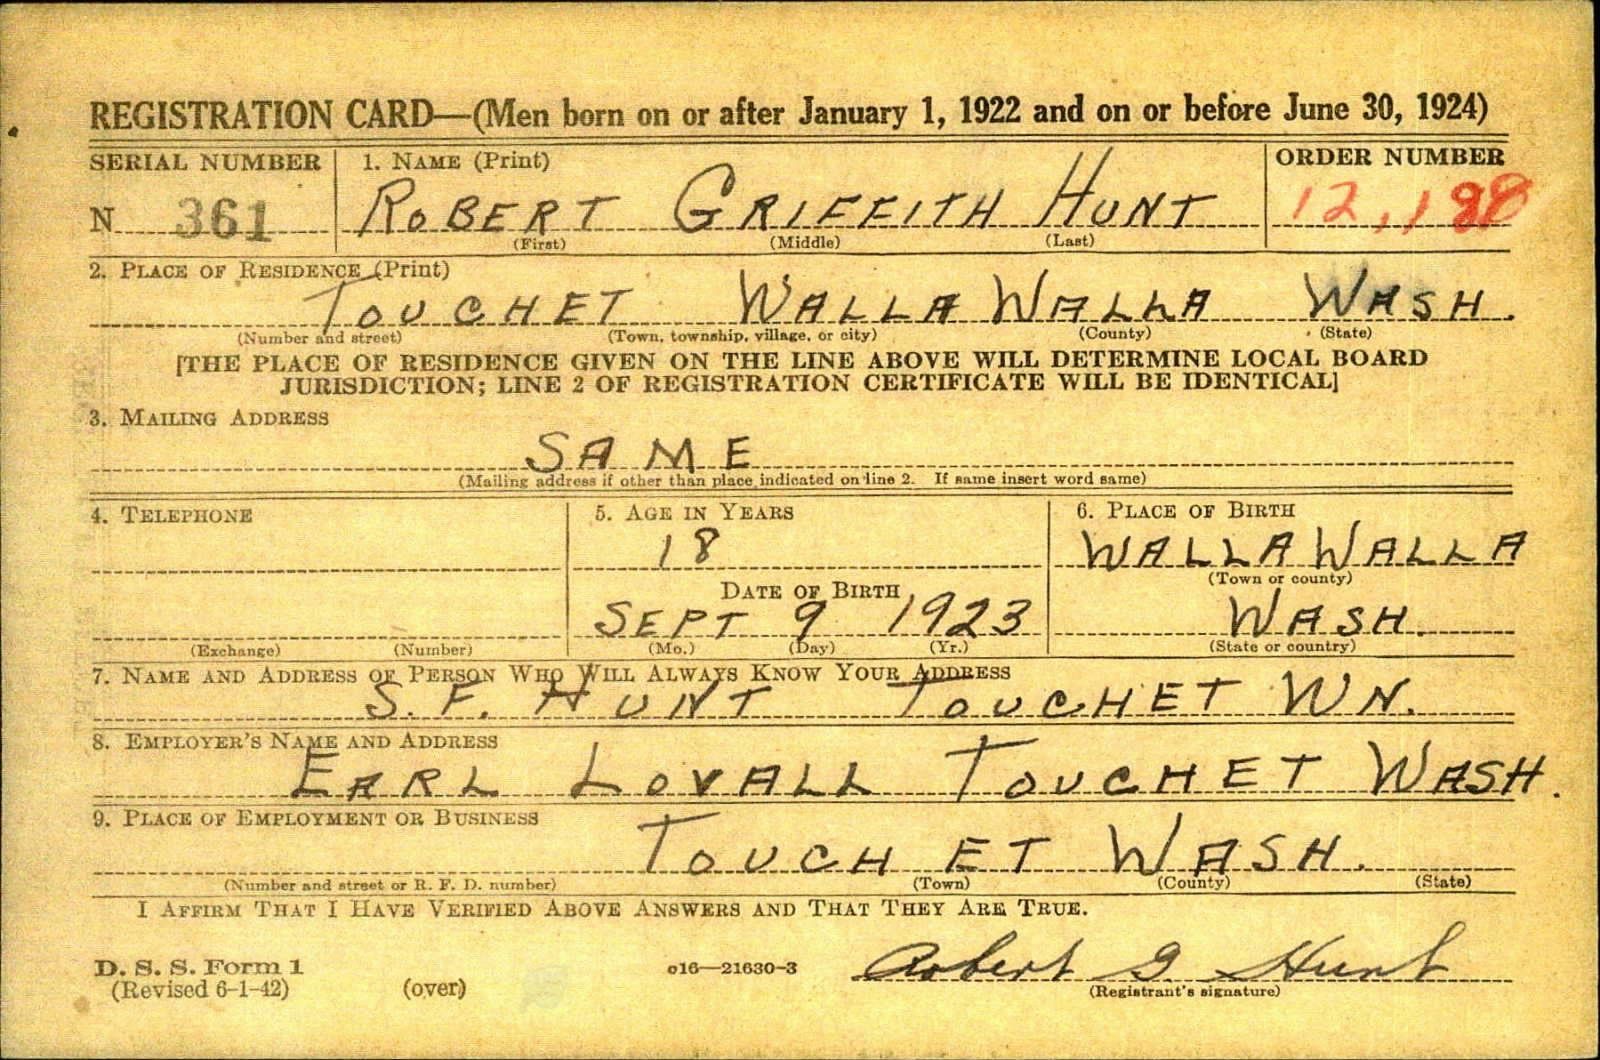 REGISTRATION CARD—(Men born on or after January 1, 1922 and on or before June 30, 1924)
SERIAL NUMBER
1. NAME (Print)
ORDER NUMBER
N 361
ROBERT GRIFFITH HUNT
12,188
(First) (Middle) (Last)
2. PLACE OF RESIDENCE (Print)
TOUCHET WALLA WALLA WASH.
(Number and street) (Town, township, village, or city) (County) (State)
[THE PLACE OF RESIDENCE GIVEN ON THE LINE ABOVE WILL DETERMINE LOCAL BOARD
JURISDICTION; LINE 2 OF REGISTRATION CERTIFICATE WILL BE IDENTICAL]
3. MAILING ADDRESS
SAME
(Mailing address if other than place indicated on line 2. If same insert word same)
4. TELEPHONE
(Exchange) (Number)
5. AGE IN YEARS
18
DATE OF BIRTH
SEPT 9 1923
(Mo.) (Day) (Yr.)
6. PLACE OF BIRTH
WALLA WALLA
(Town or county)
WASH.
(State or country)
7. NAME AND ADDRESS OF PERSON WHO WILL ALWAYS KNOW YOUR ADDRESS
S. F. HUNT TOUCHET WN.
8. EMPLOYER'S NAME AND ADDRESS
EARL LOVALL TOUCHET WASH.
9. PLACE OF EMPLOYMENT OR BUSINESS
TOUCHET WASH.
(Number and street or R. F. D. number) (Town) (County) (State)
I AFFIRM THAT I HAVE VERIFIED ABOVE ANSWERS AND THAT THEY ARE TRUE.
D. S. S. Form 1
(Revised 6-1-42) (over) c16—21630-3
Robert G. Hunt
(Registrant's signature)